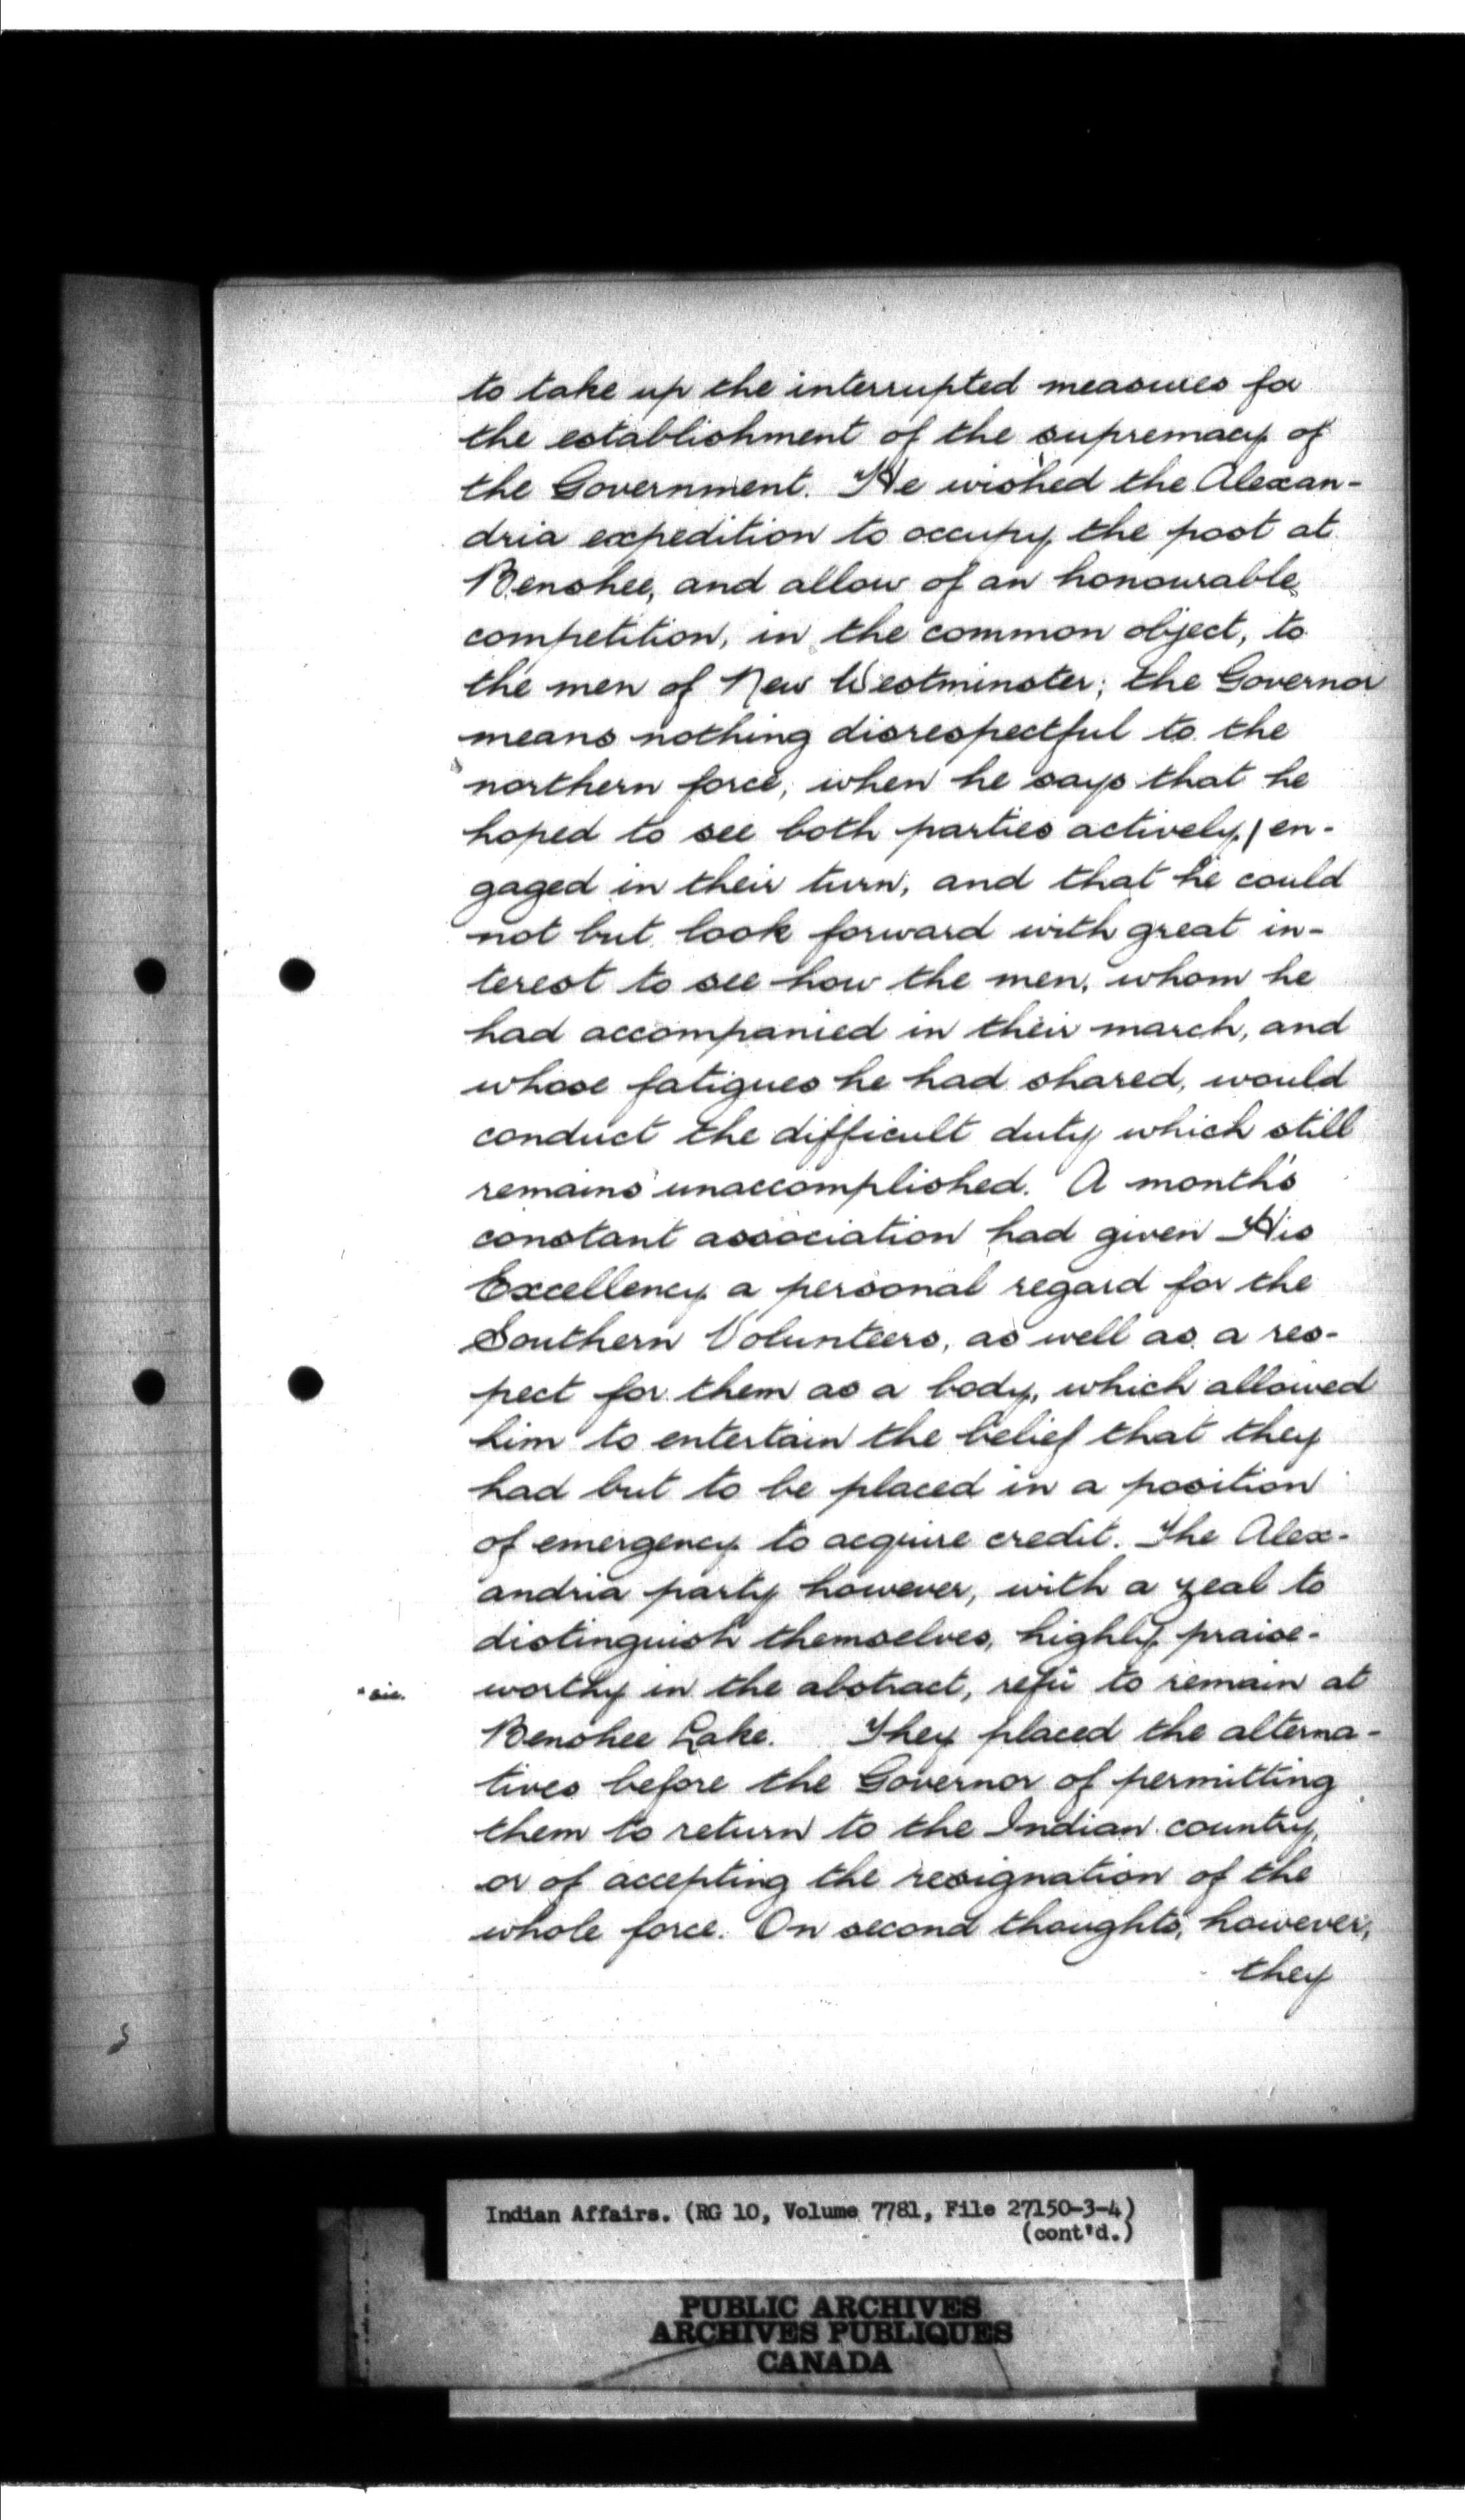 to take up the interrupted measures for
the establishment of the supremacy of
the Government. He wished the Alexan-
dria expedition to occupy the post at
Benshee, and allow of an honourable
competition, in the common object, to
the men of New Westminster; the Governor
means nothing disrespectful to the
northern force, when he says that he
hoped to see both parties actively en-
gaged in their turn, and that he could
not but look forward with great in-
terest to see how the men, whom he
had accompanied in their march, and
whose fatigues he had shared, would
conduct the difficult duty which still
remains unaccomplished. A month's
constant association had given His
Excellency a personal regard for the
Southern Volunteers, as well as a res-
pect for them as a body, which allowed
him to entertain the belief that they
had but to be placed in a position
of emergency to acquire credit. The Alex-
andria party however, with a zeal to
distinguish themselves, highly praise-
"sic. worthy in the abstract, refu to remain at
Benshee Lake. They placed the alterna-
tives before the Governor of permitting
them to return to the Indian country,
or of accepting the resignation of the
whole force. On second thoughts, however,
they
Indian Affairs. (RG 10, Volume 7781, File 27150-3-4)
(cont'd.)
PUBLIC ARCHIVES
ARCHIVES PUBLIQUES
CANADA